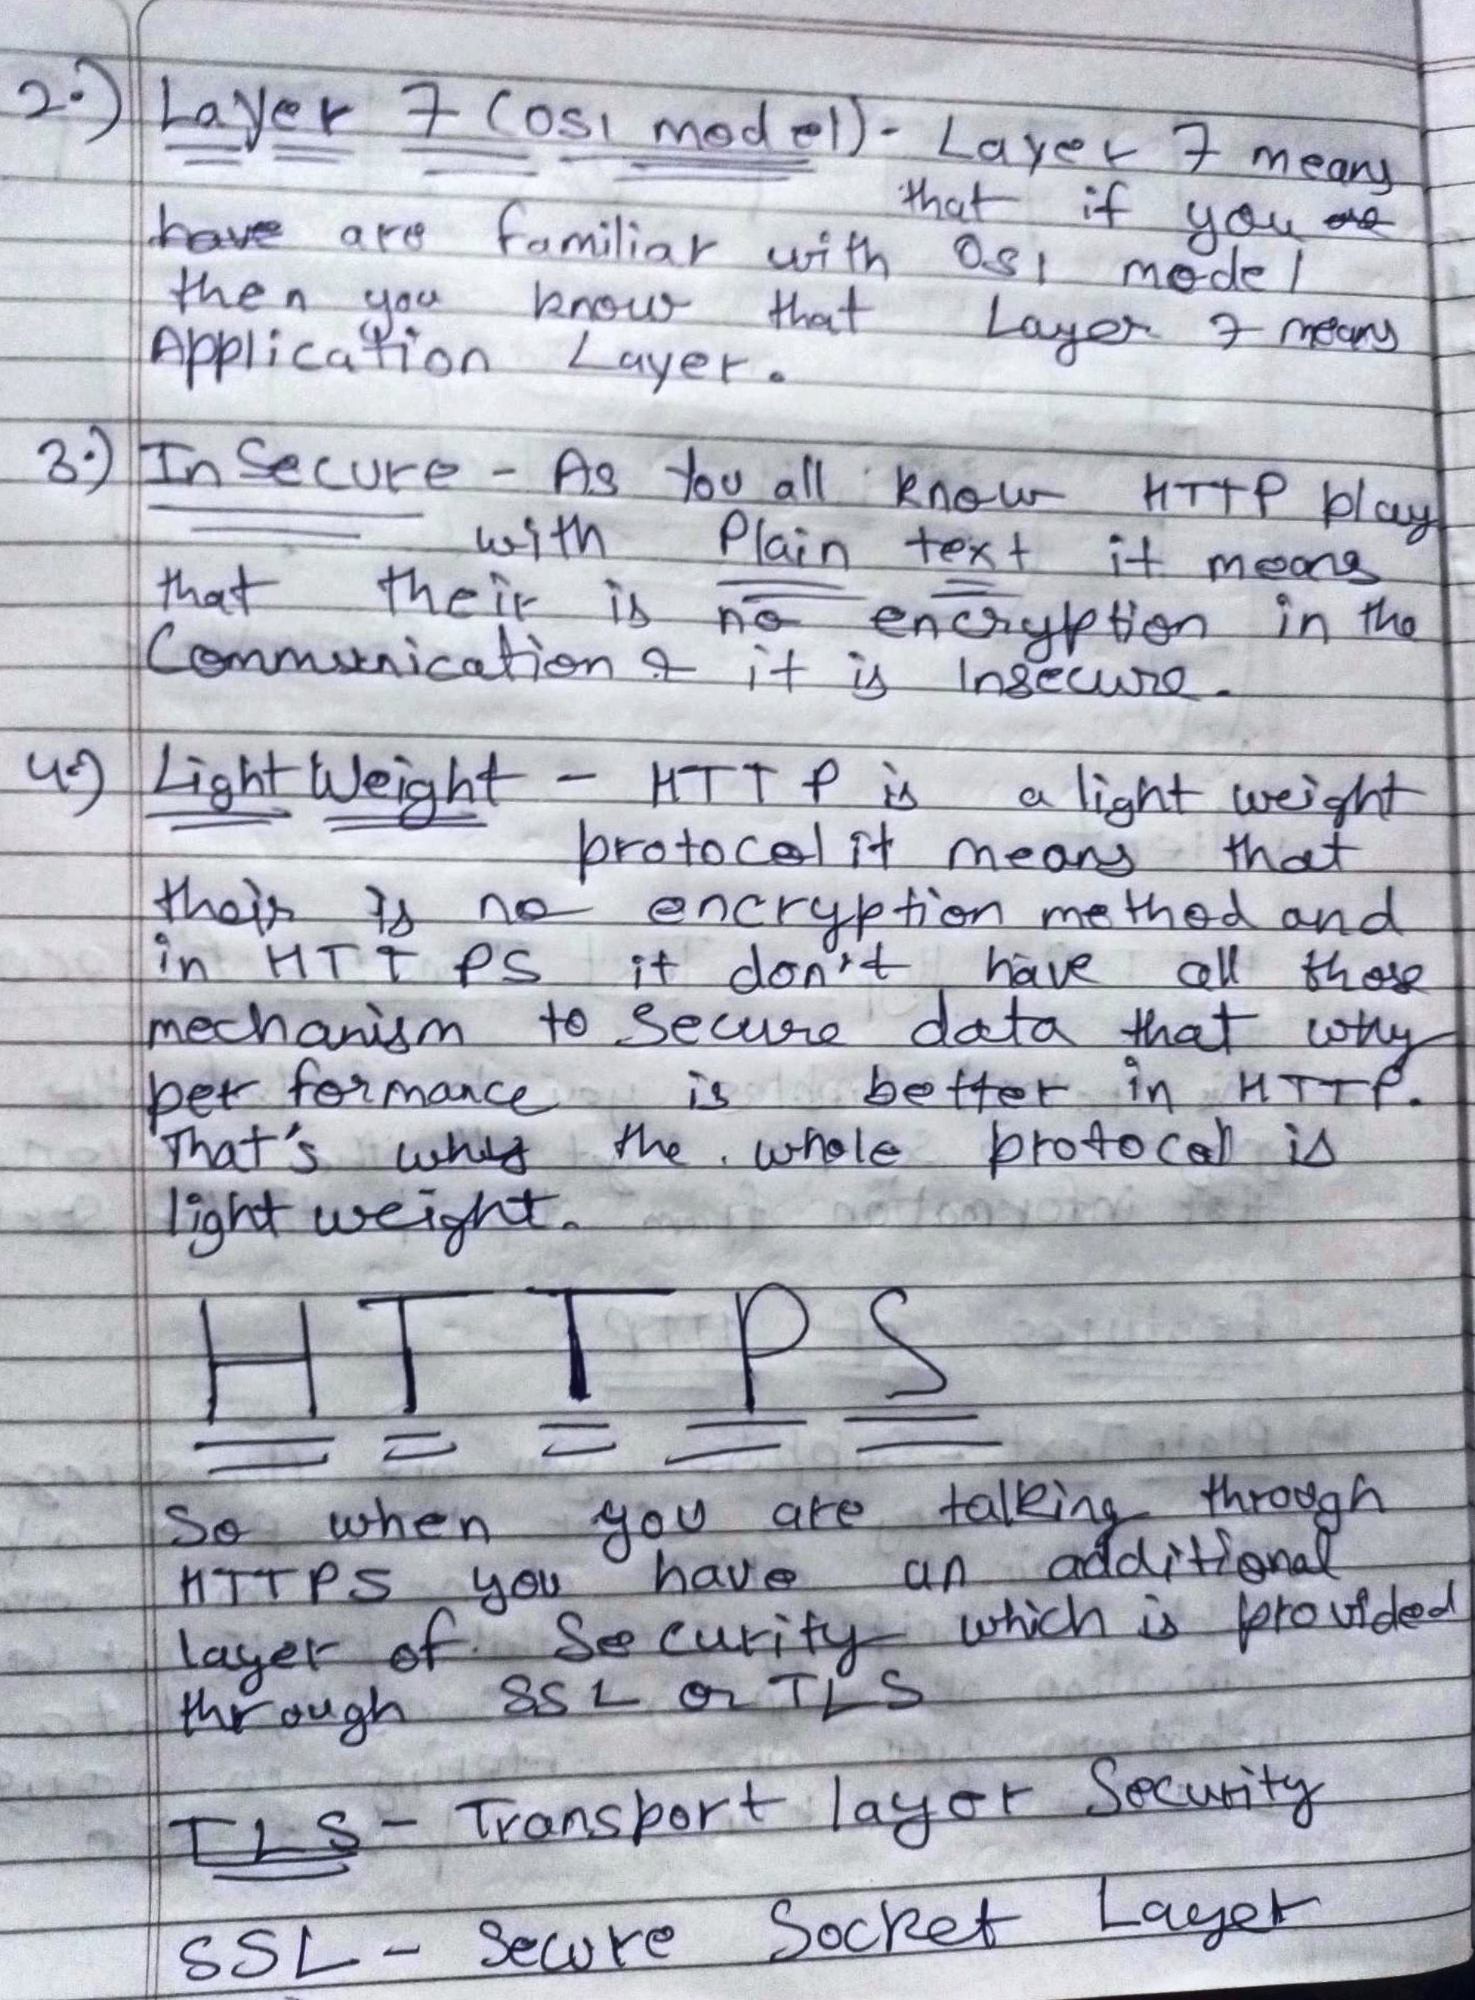 2.) Layer 7 (OSI model) - Layer 7 means
that if you are
have are familiar with OSI model
then you know that Layer 7 means
Application Layer.
3.) InSecure - As You all know HTTP play
with Plain text it means
that their is no encryption in the
Communication & it is Insecure.
4.) Light Weight - HTTP is a light weight
protocol it means that
their is no encryption method and
in HTTPS it don't have all those
mechanism to Secure data that why
performance is better in HTTP.
That's why the whole protocol is
light weight.
HTTPS
So when you are talking through
HTTPS you have an additional
layer of Security which is provided
through SSL or TLS
TLS - Transport layer Security
SSL - Secure Socket Layer